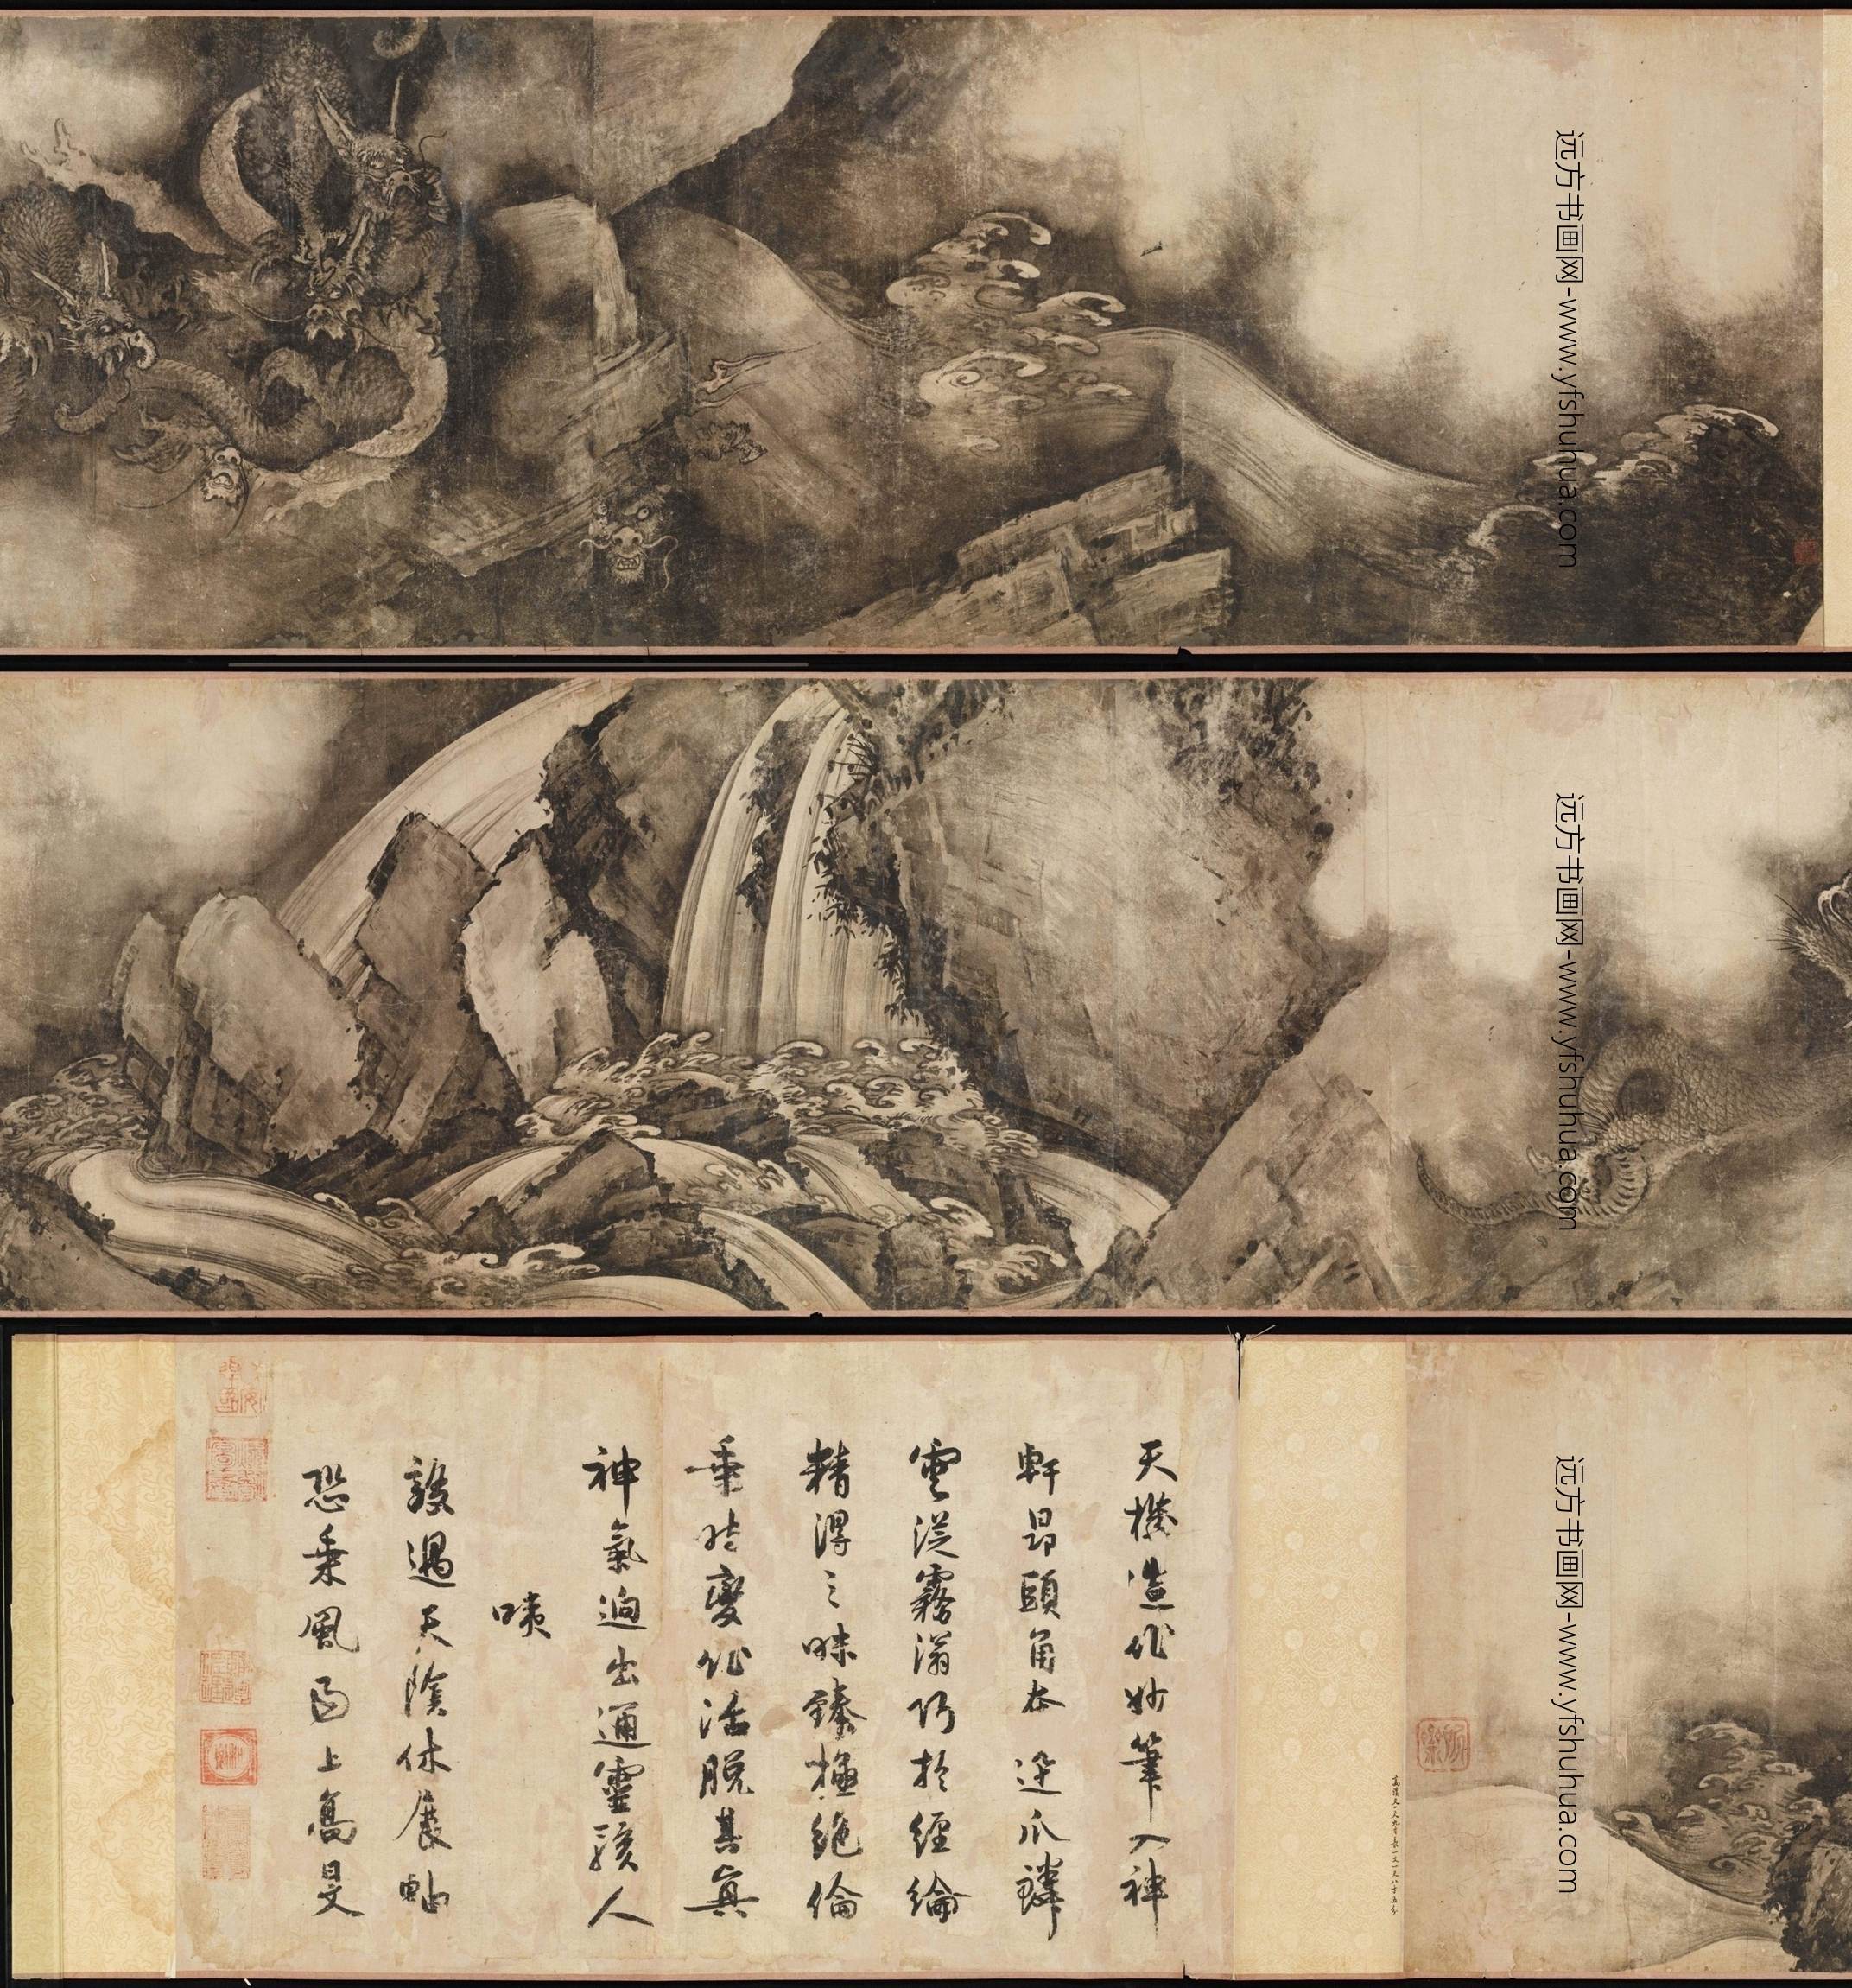 远方书画网-www.yfshuhua.com
远方书画网-www.yfshuhua.com
远方书画网-www.yfshuhua.com
天機造作妙筆入神
軒昂頭角爪鱗
雲從霧滃巧於經綸
精得三昧臻極絕倫
乘時變化活脫其真
神氣逈出通靈駭人
咦
設遇天陰休展軸
恐乘風雨上高旻